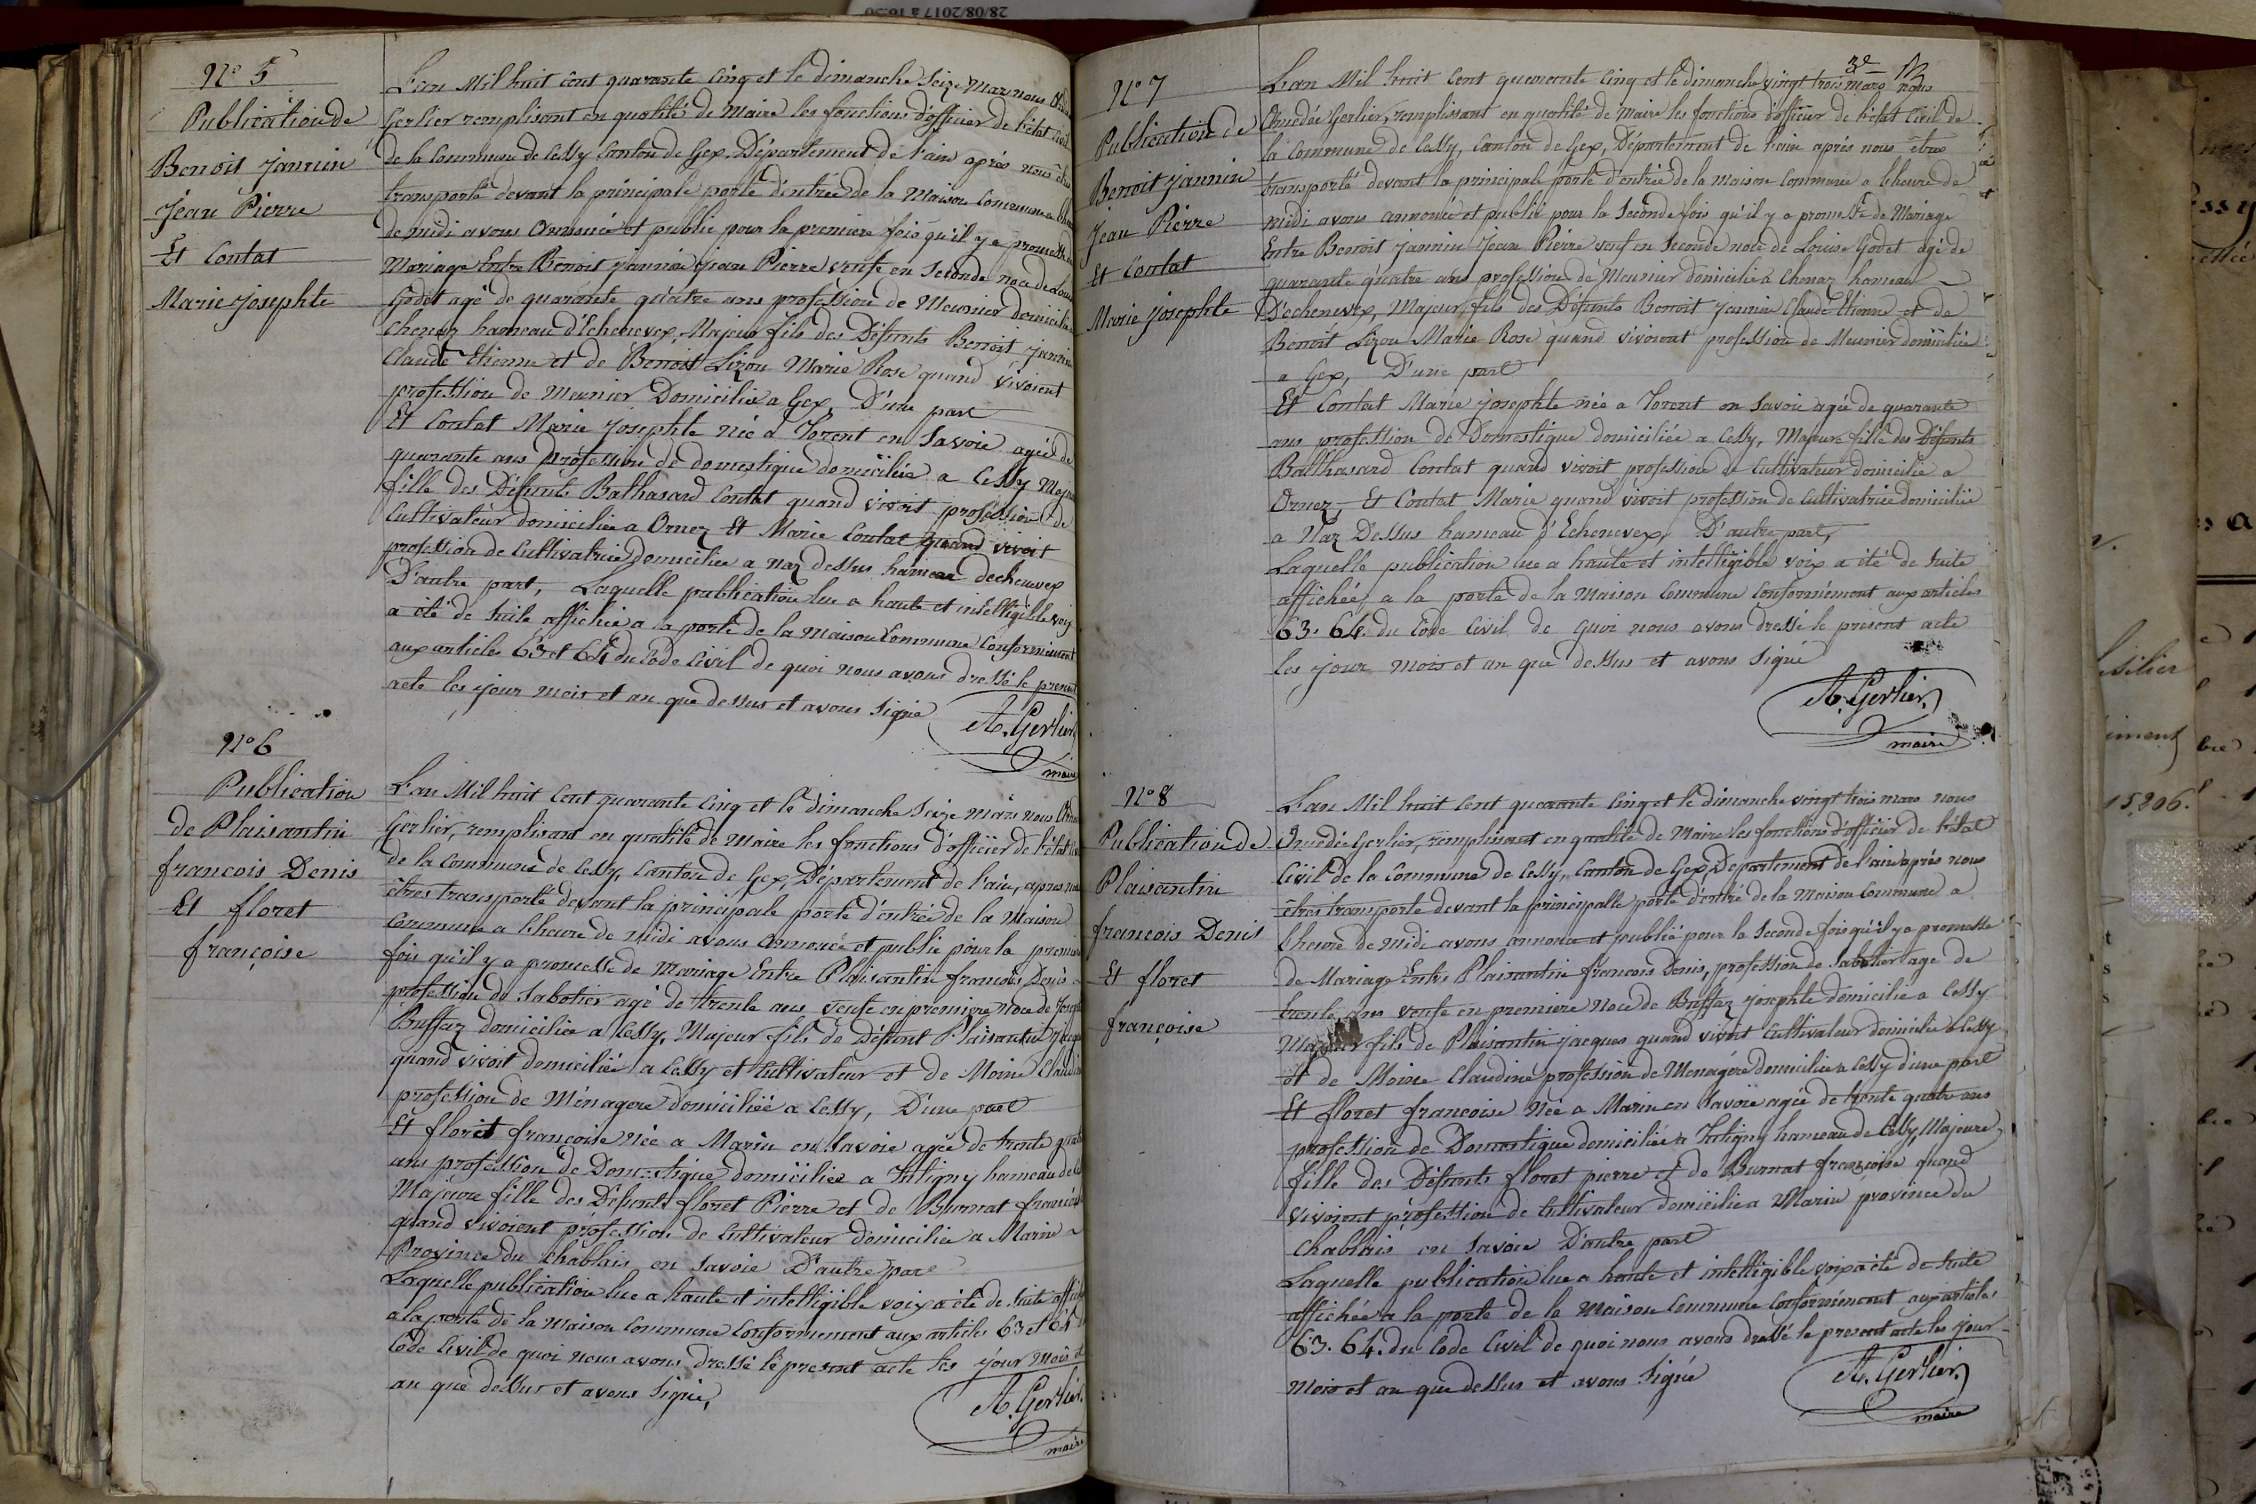 28/08/2017 à 16:30
N° 5
Publication de
Benoit Jannin
Jean Pierre
Et Contat
Marie Josephte
L'an Mil huit Cent quarante Cinq et le dimanche Seize Mars nous
Gerlier remplissant en qualité de Maire les fonctions d'officier de l'état Civil
de la Commune de Cessy Canton de Gex, Département de l'ain après nous être
transporté devant la principale porte d'entrée de la Maison Commune a
de midi avons Annoncé et publié pour la premiere fois qu'il y a promesse de
Mariage Entre Benoit Jannin Jean Pierre veuf en Seconde noce de Louise
Godet agé de quarante quatre ans profession de Meunier domicilié
Chenaz hameau d'Echenevex, Majeur fils des Défunts Benoit Jannin
Claude Etienne et de Benoit Lizon Marie Rose quand vivoient
profession de Meunier Domicilié a Gex, D'une part
Et Contat Marie Josephte née a Torent en Savoie agée de
quarante ans profession de domestique domiciliée a Cessy Majeure
fille des Défunts Balthasard Contat quand vivoit profession de
Cultivateur domicilié a Ornex Et Marie Contat quand vivoit
profession de Cultivatrice domiciliée a naz dessus hameau dechenevex
D'autre part, Laquelle publication lue a haute et intelligible voix
a été de Suite affichée a la porte de la Maison Commune Conformément
aux articles 63 et 64 du Code Civil de quoi nous avons dressé le présent
acte les jour mois et an que dessus et avons Signé
A. Gerlier
maire
N° 6
Publication
de Plaisantin
francois Denis
Et floret
françoise
L'an Mil huit Cent quarante Cinq et le dimanche Seize mars nous
Gerlier, remplissant en qualité de Maire les fonctions d'officier de l'état
de la Commune de Cessy, Canton de Gex, Département de l'ain, après nous
êtres transporté devant la principale porte d'entrée de la Maison
Commune a l'heure de midi avons annoncé et publié pour la premiere
fois qu'il y a promesse de Mariage Entre Plaisantin francois Denis
profession de Sabotier agé de trente ans veuf en premiere noce de Josephte
Buffaz domicilié a Cessy, Majeur fils de Défunt Plaisantin Jacques
quand vivoit domicilié a Cessy et Cultivateur et de Moine Claudine
profession de Ménagere domiciliée a Cessy, D'une part
Et floret françoise née a Marin en Savoie agée de trente quatre
ans profession de Domestique domiciliée a Tutigny hameau de
Majeure fille des Défunts floret Pierre et de Burnat francoise
quand vivoient profession de Cultivateur domicilié a Marin
Province du Chablais en Savoie D'autre part
Laquelle publication lue a haute et intelligible voix a été de Suite affichée
a la porte de la Maison Commune Conformément aux articles 63 et 64 du
Code Civil de quoi nous avons dressé le présent acte les jour Mois et
an que dessus et avons Signé,
A. Gerlier
maire
3e
N° 7
Publication de
Benoit Jannin
Jean Pierre
Et Contat
Marie Josephte
L'an Mil huit Cent quarante Cinq et le dimanche vingt trois mars nous
Amedée Gerlier, remplissant en qualité de Maire les fonctions d'officier de l'état Civil de
la Commune de Cessy, Canton de Gex, Département de l'ain après nous êtres
transporté devant la principale porte d'entrée de la Maison Commune a l'heure de
midi avons annoncé et publié pour la Seconde fois qu'il y a promesse de Mariage
Entre Benoit Jannin Jean Pierre veuf en Seconde noce de Louise Godet agé de
quarante quatre ans profession de Meunier domicilié a Chenaz hameau
D'echenevex, Majeur fils des Défunts Benoit Jannin Claude Etienne et de
Benoit Lizon Marie Rose quand vivoient profession de Meunier domicilié
a Gex, D'une part
Et Contat Marie Josephte née a Torent en Savoie agée de quarante
ans profession de Domestique domiciliée a Cessy, Majeure fille des Défunts
Balthasard Contat quand vivoit profession de Cultivateur domicilié a
Ornex, Et Contat Marie quand vivoit profession de Cultivatrice domiciliée
a Naz Dessus hameau d'Echenevex, D'autre part,
Laquelle publication lue a haute et intelligible voix a été de Suite
affichée, a la porte de la Maison Commune Conformément aux articles
63. 64. du Code Civil de quoi nous avons dressé le présent acte
les jour mois et an que dessus et avons Signé
A. Gerlier
maire
N° 8
Publication de
Plaisantin
francois Denis
Et floret
françoise
L'an Mil huit Cent quarante Cinq et le dimanche vingt trois mars nous
Amedée Gerlier, remplissant en qualité de Maire les fonctions d'officier de l'état
Civil de la Commune de Cessy, Canton de Gex, Département de l'ain après nous
êtres transporté devant la principalle porte d'entré de la Maison Commune a
l'heure de midi avons annoncé et publié pour la Seconde fois qu'il y a promesse
de Mariage Entre Plaisantin francois Denis, profession de Sabotier agé de
trente ans veuf en premiere Noce de Buffaz Josephte domicilié a Cessy
Majeur fils de Plaisantin Jacques quand vivoit Cultivateur domicilié a Cessy
et de Moine Claudine profession de Menagère domiciliée a Cessy d'une part
Et floret francoise Née a Marin en Savoie agée de trente quatre ans
profession de Domestique domiciliée a Tutigny hameau de Cessy, Majeure
fille des Défunts floret pierre et de Burnat francoise quand
vivoient profession de Cultivateur domicilié a Marin province du
Chablais en Savoie D'autre part
Laquelle publication lue a haute et intelligible voix a été de Suite
affichée a la porte de la Maison Commune Conformément aux articles
63. 64. du Code Civil de quoi nous avons dressé le present acte les jour
Mois et an que dessus et avons Signé
A. Gerlier
maire
15,206.